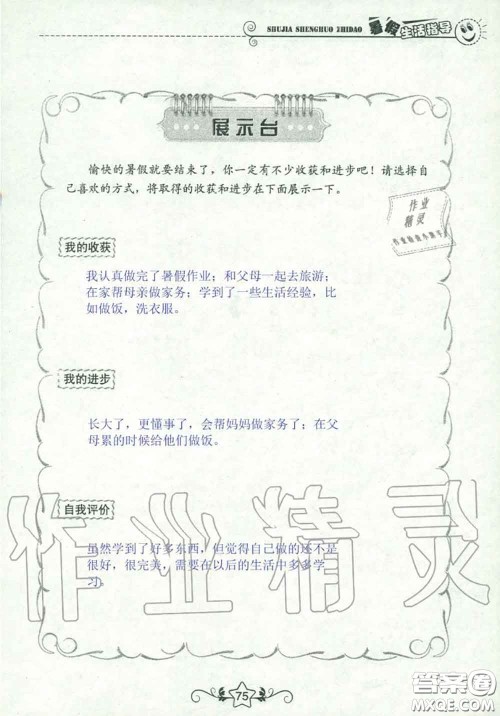 SHUJIA SHENGHUO ZHIDAO
暑假生活指导
展示台
愉快的暑假就要结束了，你一定有不少收获和进步吧！请选择自
己喜欢的方式，将取得的收获和进步在下面展示一下。
作业
精灵
我的收获
我认真做完了暑假作业；和父母一起去旅游；
在家帮母亲做家务；学到了一些生活经验，比
如做饭，洗衣服。
我的进步
长大了，更懂事了，会帮妈妈做家务了；在父
母累的时候给他们做饭。
自我评价
虽然学到了好多东西，但觉得自己做的还不是
很好，很完美，需要在以后的生活中多多学
习。
作业精灵
75
答案圈
MXQE.COM